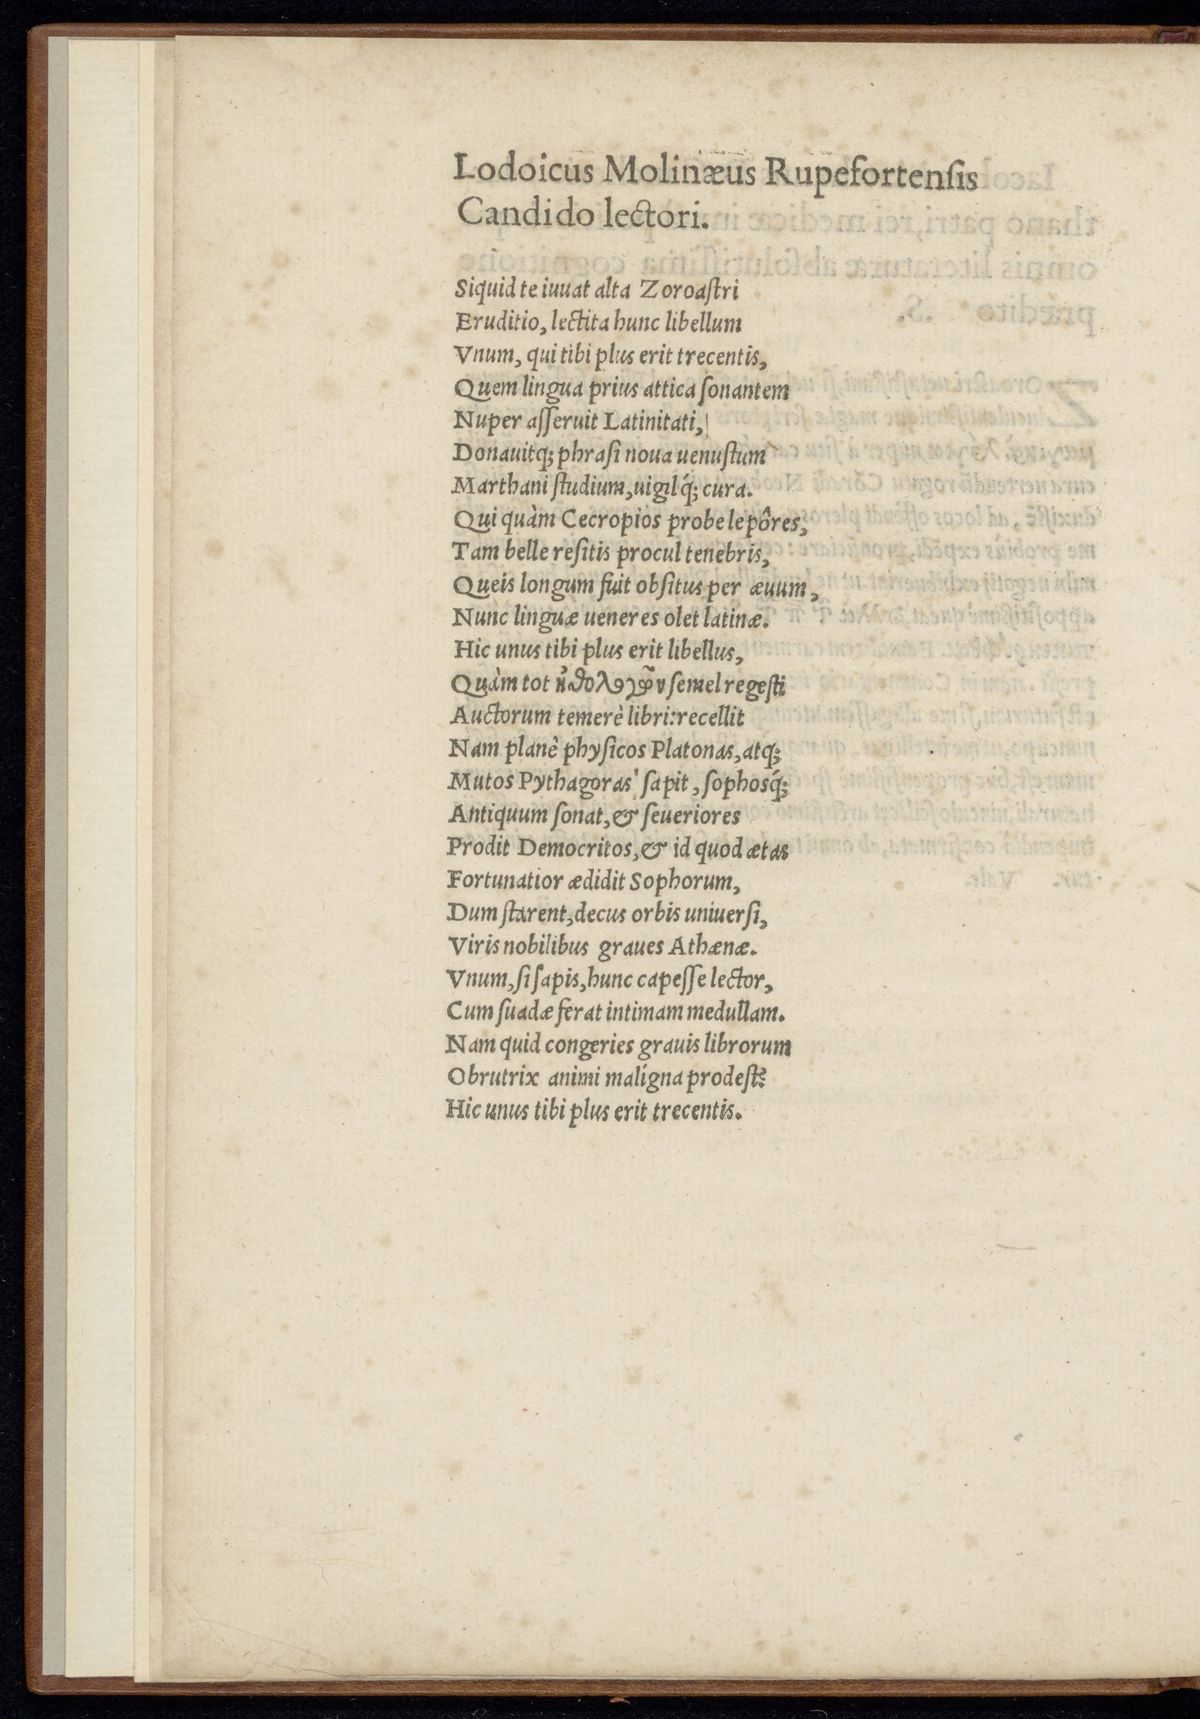 Lodoicus Molinæus Rupefortensis
Candido lectori.
Siquid te iuuat alta Zoroastri
Eruditio, lectita hunc libellum
Vnum, qui tibi plus erit trecentis,
Quem lingua prius attica sonantem
Nuper asseruit Latinitati,
Donauitq; phrasi noua uenustum
Marthani studium, uigilq́; cura.
Qui quàm Cecropios probe lepôres,
Tam belle resitis procul tenebris,
Queis longum fuit obsitus per æuum,
Nunc linguæ ueneres olet latinæ.
Hic unus tibi plus erit libellus,
Quàm tot semel regesti
Auctorum temerè libri: recellit
Nam planè physicos Platonas, atq;
Mutos Pythagoras' sapit, sophosq́;
Antiquum sonat, & seueriores
Prodit Democritos, & id quod ætas
Fortunatior ædidit Sophorum,
Dum starent, decus orbis uniuersi,
Viris nobilibus graues Athænæ.
Vnum, si sapis, hunc capesse lector,
Cum suadæ ferat intimam medullam.
Nam quid congeries grauis librorum
Obrutrix animi malígna prodest?
Hic unus tibi plus erit trecentis.